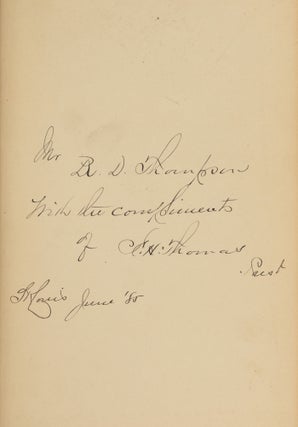 Mr
B. D. Thompson
With the compliments
of F. H. Thomas
St Louis June '85